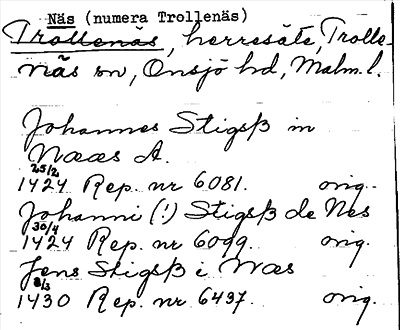 Näs (numera Trollenäs)
Trollenäs, herresäte, Trolle-
näs sn, Onsjö hd, Malm. l.
Johannes Stigsß in
Næes A.
25/2
1424 Rep. nr 6081. orig.
Johanni (!) Stigsß de Nes
30/4
1424 Rep. nr 6099. orig.
Jens Stigsß i Næs
8/3
1430 Rep. nr 6437. orig.